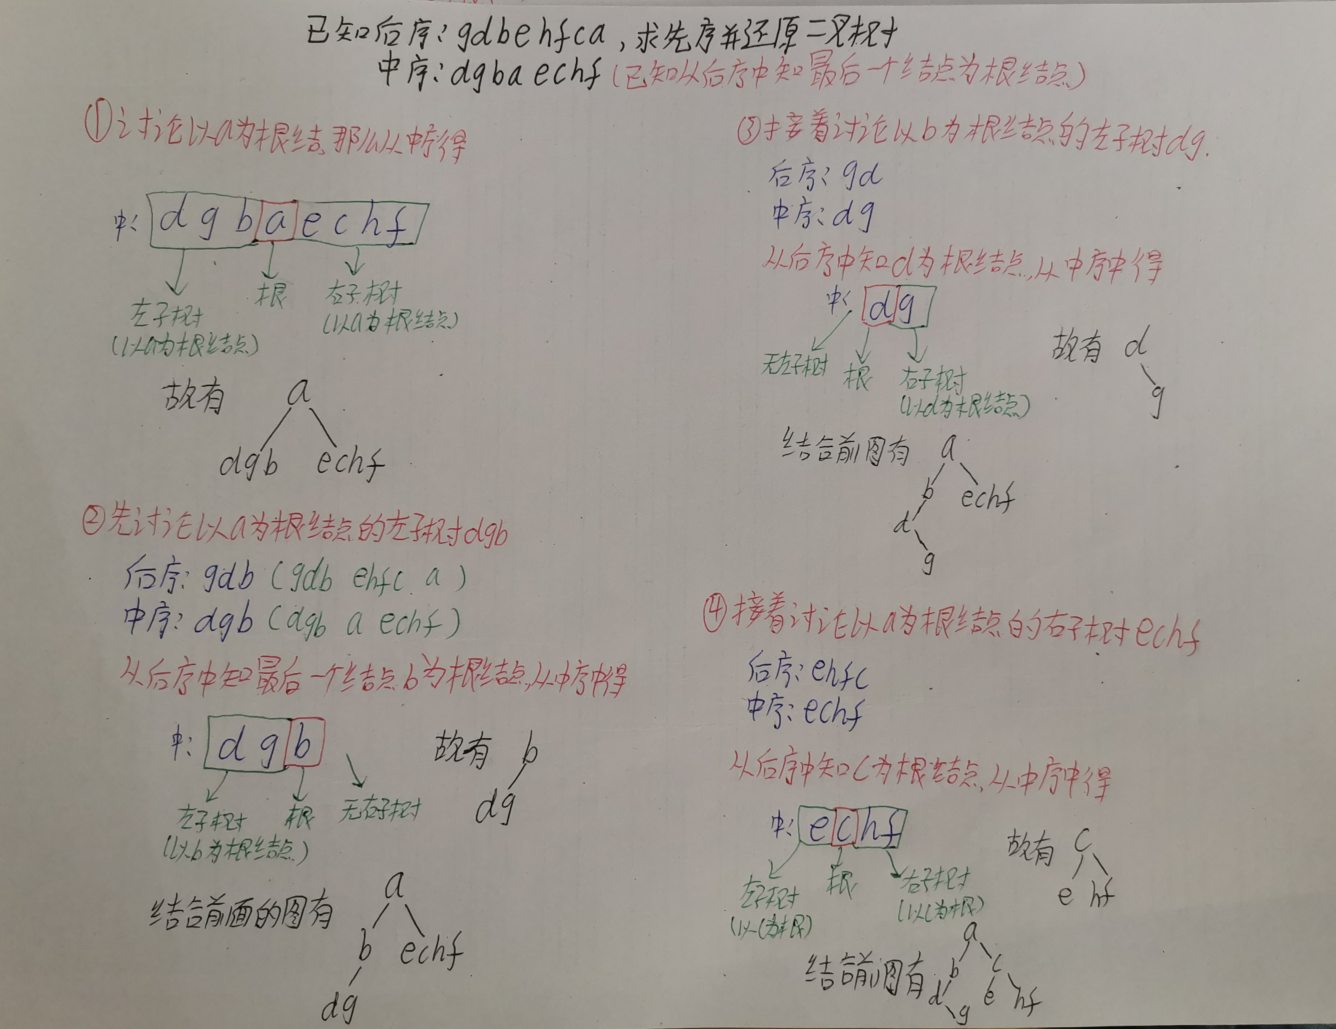 已知后序：gdbehfca，求先序并还原二叉树
中序：dgbaechf（已知从后序中知最后一个结点为根结点）
①讨论以a为根结点那么从中序得
中：dgbaechf
左子树
（以a为根结点）
根
右子树
（以a为根结点）
故有
a
dgb echf
②先讨论以a为根结点的左子树dgb
后序：gdb（gdb ehfc a）
中序：dgb（dgb a echf）
从后序中知最后一个结点b为根结点，从中序中得
中：dgb
左子树
（以b为根结点）
根
无右子树
故有
b
dg
结合前面的图有
a
b echf
dg
③接着讨论以b为根结点的左子树dg.
后序：gd
中序：dg
从后序中知d为根结点，从中序中得
中：dg
无左子树
根
右子树
（以d为根结点）
故有
d
g
结合前图有
a
b echf
d
g
④接着讨论以a为根结点的右子树echf
后序：ehfc
中序：echf
从后序中知c为根结点，从中序中得
中：echf
左子树
（以c为根）
根
右子树
（以c为根）
故有
c
e hf
结合前图有
a
b c
d e hf
g